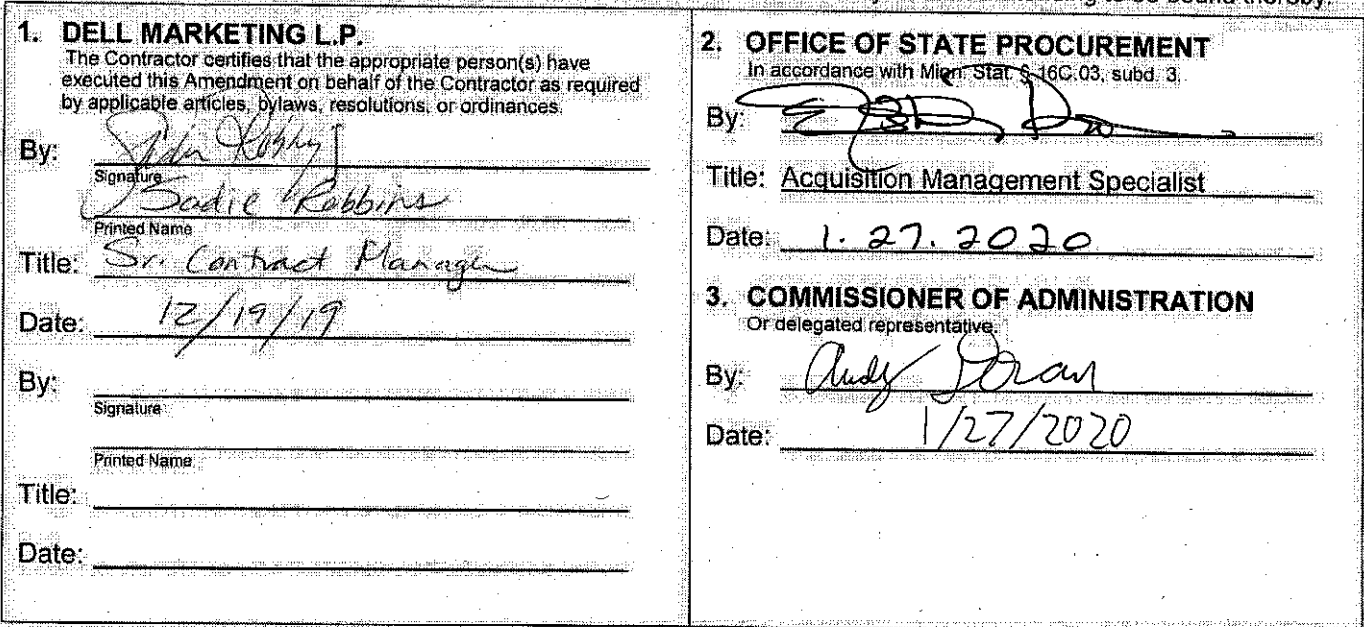 to be bound thereby.
1. DELL MARKETING L.P.
The Contractor certifies that the appropriate person(s) have
executed this Amendment on behalf of the Contractor as required
by applicable articles, bylaws, resolutions, or ordinances.
By:
Signature
Sadie Robbins
Printed Name
Title: Sr. Contract Manager
Date: 12/19/19
By:
Signature
Printed Name
Title:
Date:
2. OFFICE OF STATE PROCUREMENT
In accordance with Minn. Stat. § 16C.03, subd. 3.
By:
Title: Acquisition Management Specialist
Date: 1.27.2020
3. COMMISSIONER OF ADMINISTRATION
Or delegated representative.
By: Andy Doran
Date: 1/27/2020